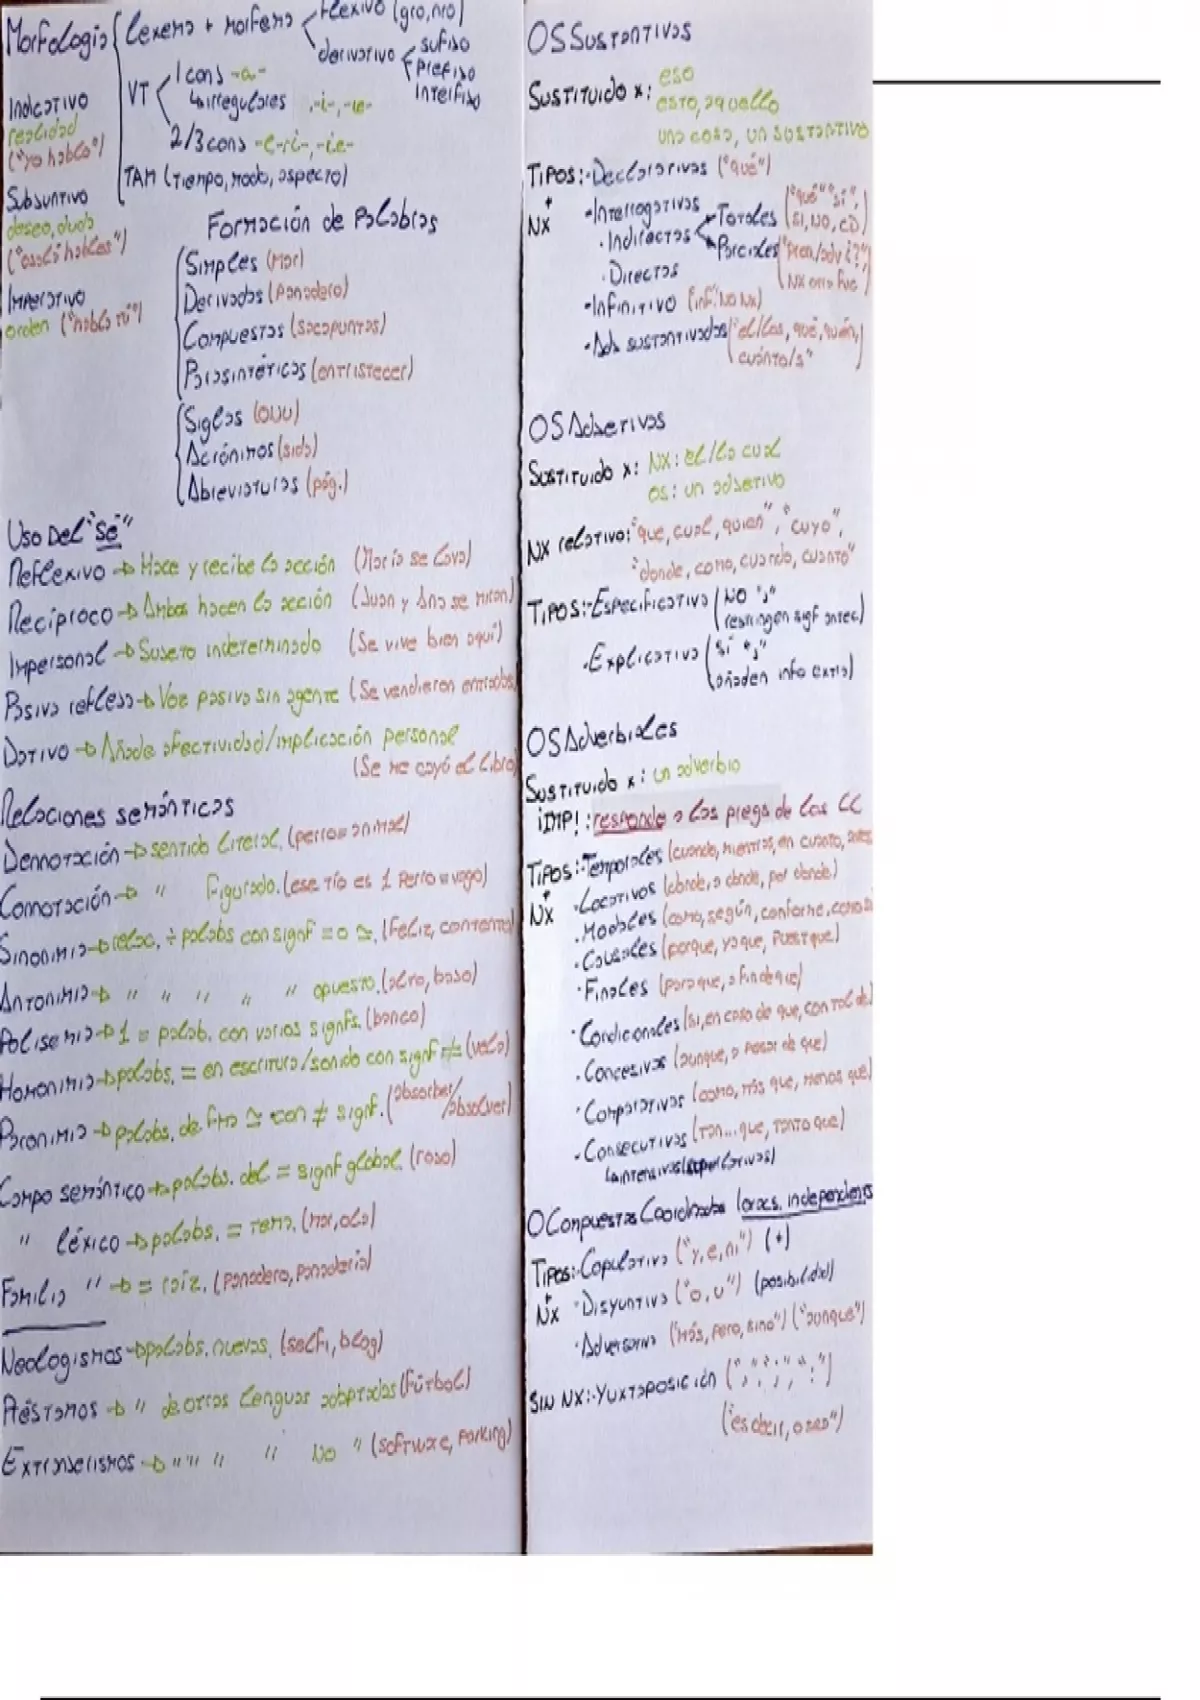 Morfología { lexema + morfema < flexivo (gro, nro)
derivativo < sufijo
prefijo
interfijo
VT < 1 conj -a-
↳ irregulares -i-, -ie-
2/3 conj -e-, -i-, -ie-
TAM (tiempo, modo, aspecto)
Indicativo
realidad
("yo hablo")
Subjuntivo
deseo, duda
("ojalá hables")
Imperativo
orden ("habla tú")
Formación de Palabras
Simples (mar)
Derivadas (panadero)
Compuestas (sacapuntas)
Parasintéticas (entristecer)
Siglas (ONU)
Acrónimos (sida)
Abreviaturas (pág.)
Uso del "se"
Reflexivo → Hace y recibe la acción (María se lava)
Recíproco → Ambos hacen la acción (Juan y Ana se miran)
Impersonal → Sujeto indeterminado (Se vive bien aquí)
Pasiva refleja → Voz pasiva sin agente (Se vendieron entradas)
Dativo → Añade afectividad/implicación personal
(Se me cayó el libro)
Relaciones semánticas
Dennotación → sentido literal. (perro = animal)
Connotación → " Figurado. (ese tío es 1 perro = vago)
Sinonimia → relac. ÷ palabs con signf = o ≃. (Feliz, contento)
Antonimia → " " " " " opuesto. (alto, bajo)
Polisemia → 1 = palab. con varios signfs. (banco)
Homonimia → palabs. = en escritura/sonido con signf ≠ (vela)
Paronimia → palabs. de fma ≃ con ≠ signf. (absorber/absolver)
Campo semántico → palabs. del = signf global. (rosa)
" léxico → palabs. = tema. (mar, ola)
Familia " → = raíz. (panadero, panadería)
Neologismos → palabs. nuevas. (selfi, blog)
Préstamos → " de otras lenguas adaptadas (fútbol)
Extranjerismos → " " " " No " (software, parking)
OS Sustantivas
Sustituido x: eso
esto, aquello
una cosa, un sustantivo
Tipos: · Declarativas ("qué")
+
NX · Interrogativas
· Indirectas < Totales ("qué" "si", SI, NO, CD)
Parciales ("pron/adv ¿?", NX otra fuc)
· Directas
· Infinitivo (inf. No NX)
· Adj sustantivadas ("el/las, qué, quién, cuánto/s"
OS Adjetivas
Sustituido x: NX: el/la cual
OS: un adjetivo
NX relativo: "que, cual, quien", "cuyo",
"donde, como, cuando, cuanto"
Tipos: · Especificativa (NO ","
restringen sigf antec)
· Explicativa (Sí ","
añaden info extra)
OS Adverbiales
Sustituido x: un adverbio
¡IMP!: responde a las pregs de los CC
Tipos: · Temporales (cuando, mientras, en cuanto, antes
+
NX · Locativos (donde, a donde, por donde)
· Modales (como, según, conforme, como si
· Causales (porque, ya que, puest que)
· Finales (para que, a fin de que)
· Condicionales (si, en caso de que, con tal de)
· Concesivas (aunque, a pesar de que)
· Comparativas (como, más que, menos que)
· Consecutivas (tan... que, tanto que)
↳ intensivas (superlativas)
O Compuestas Coordinadas (oracs. independens
Tipos: · Copulativa ("y, e, ni") (+)
+
NX · Disyuntiva ("o, u") (posibilidad)
· Adversativa ("Más, pero, sino") ("aunque")
SIN NX: · Yuxtaposición (",", ";", ":")
("es decir, o sea")